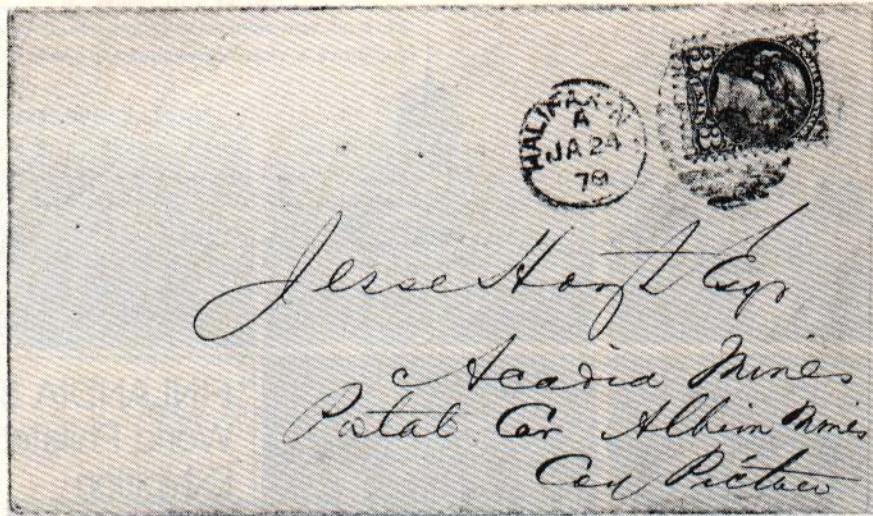 HALIFAX · N
A
JA 24
78
3 3
Jesse Hoyt Esqr
Acadia Mines
Postal Car Albion Mines
Cou Pictou